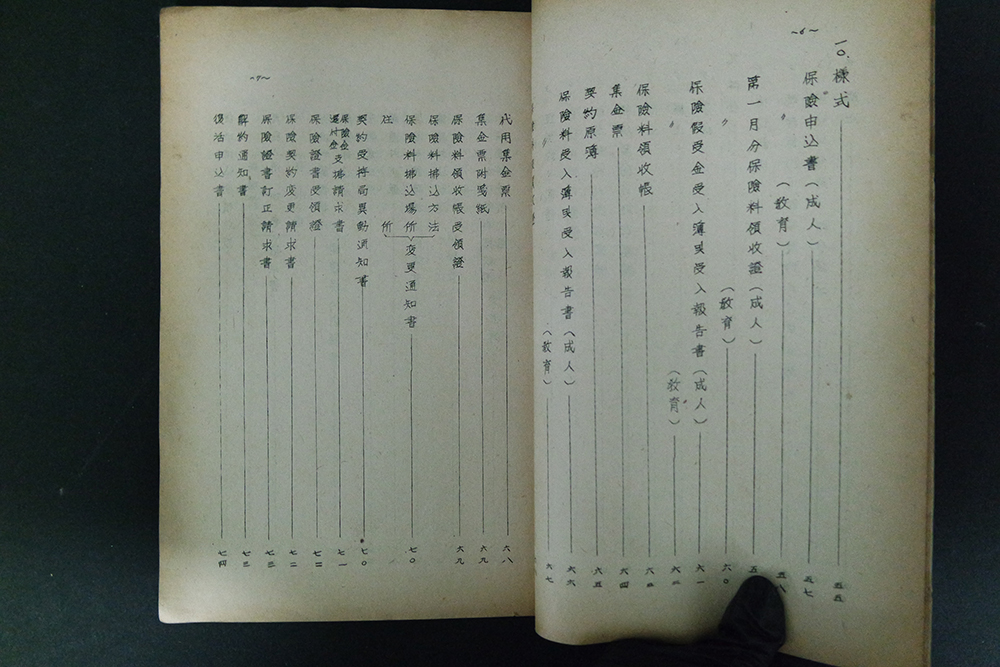 ~6~
一〇、樣式 五五
保險申込書(成人) 五七
〃 (敎育) 五八
第一月分保險料領收證(成人) 五
(敎育) 六〇
保險假受金受入簿及受入報告書(成人) 六一
〃 (敎育) 六二
保險料領收帳 六三
集金票 六四
契約原簿 六五
保險料受入簿及受入報告書(成人) 六六
(敎育) 六七
~7~
代用集金票 六八
集金票附箋紙 六九
保險料領收帳受領證 六九
保險料拂込方法
保險料拂込場所 變更通知書 七〇
住 所
契約受持局異動通知書 七〇
保險金
還付金 受拂請求書 七一
保險證書受領證 七二
保險契約変更請求書 七二
保險證書訂正請求書 七三
解約通知書 七三
復活申込書 七四